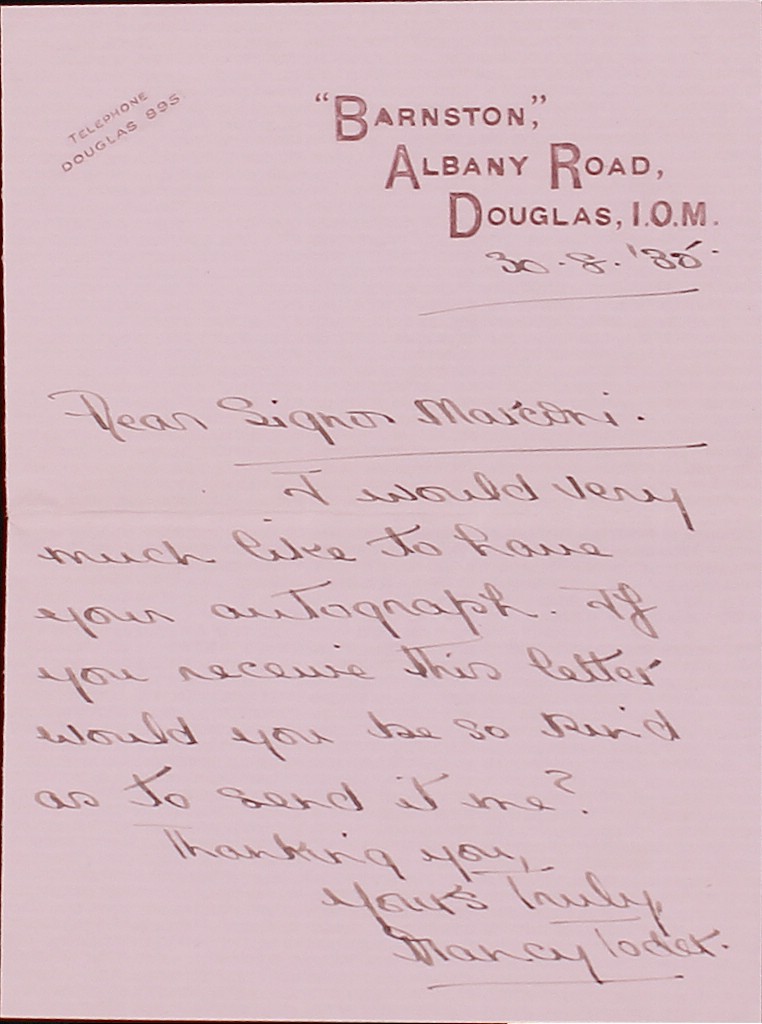 TELEPHONE
DOUGLAS 995
"BARNSTON,"
ALBANY ROAD,
DOUGLAS, I.O.M.
30.8.'35.
Dear Signor Marconi.
I would very
much like to have
your autograph. If
you receive this letter
would you be so kind
as to send it me?
Thanking you,
yours Truly,
Nancy